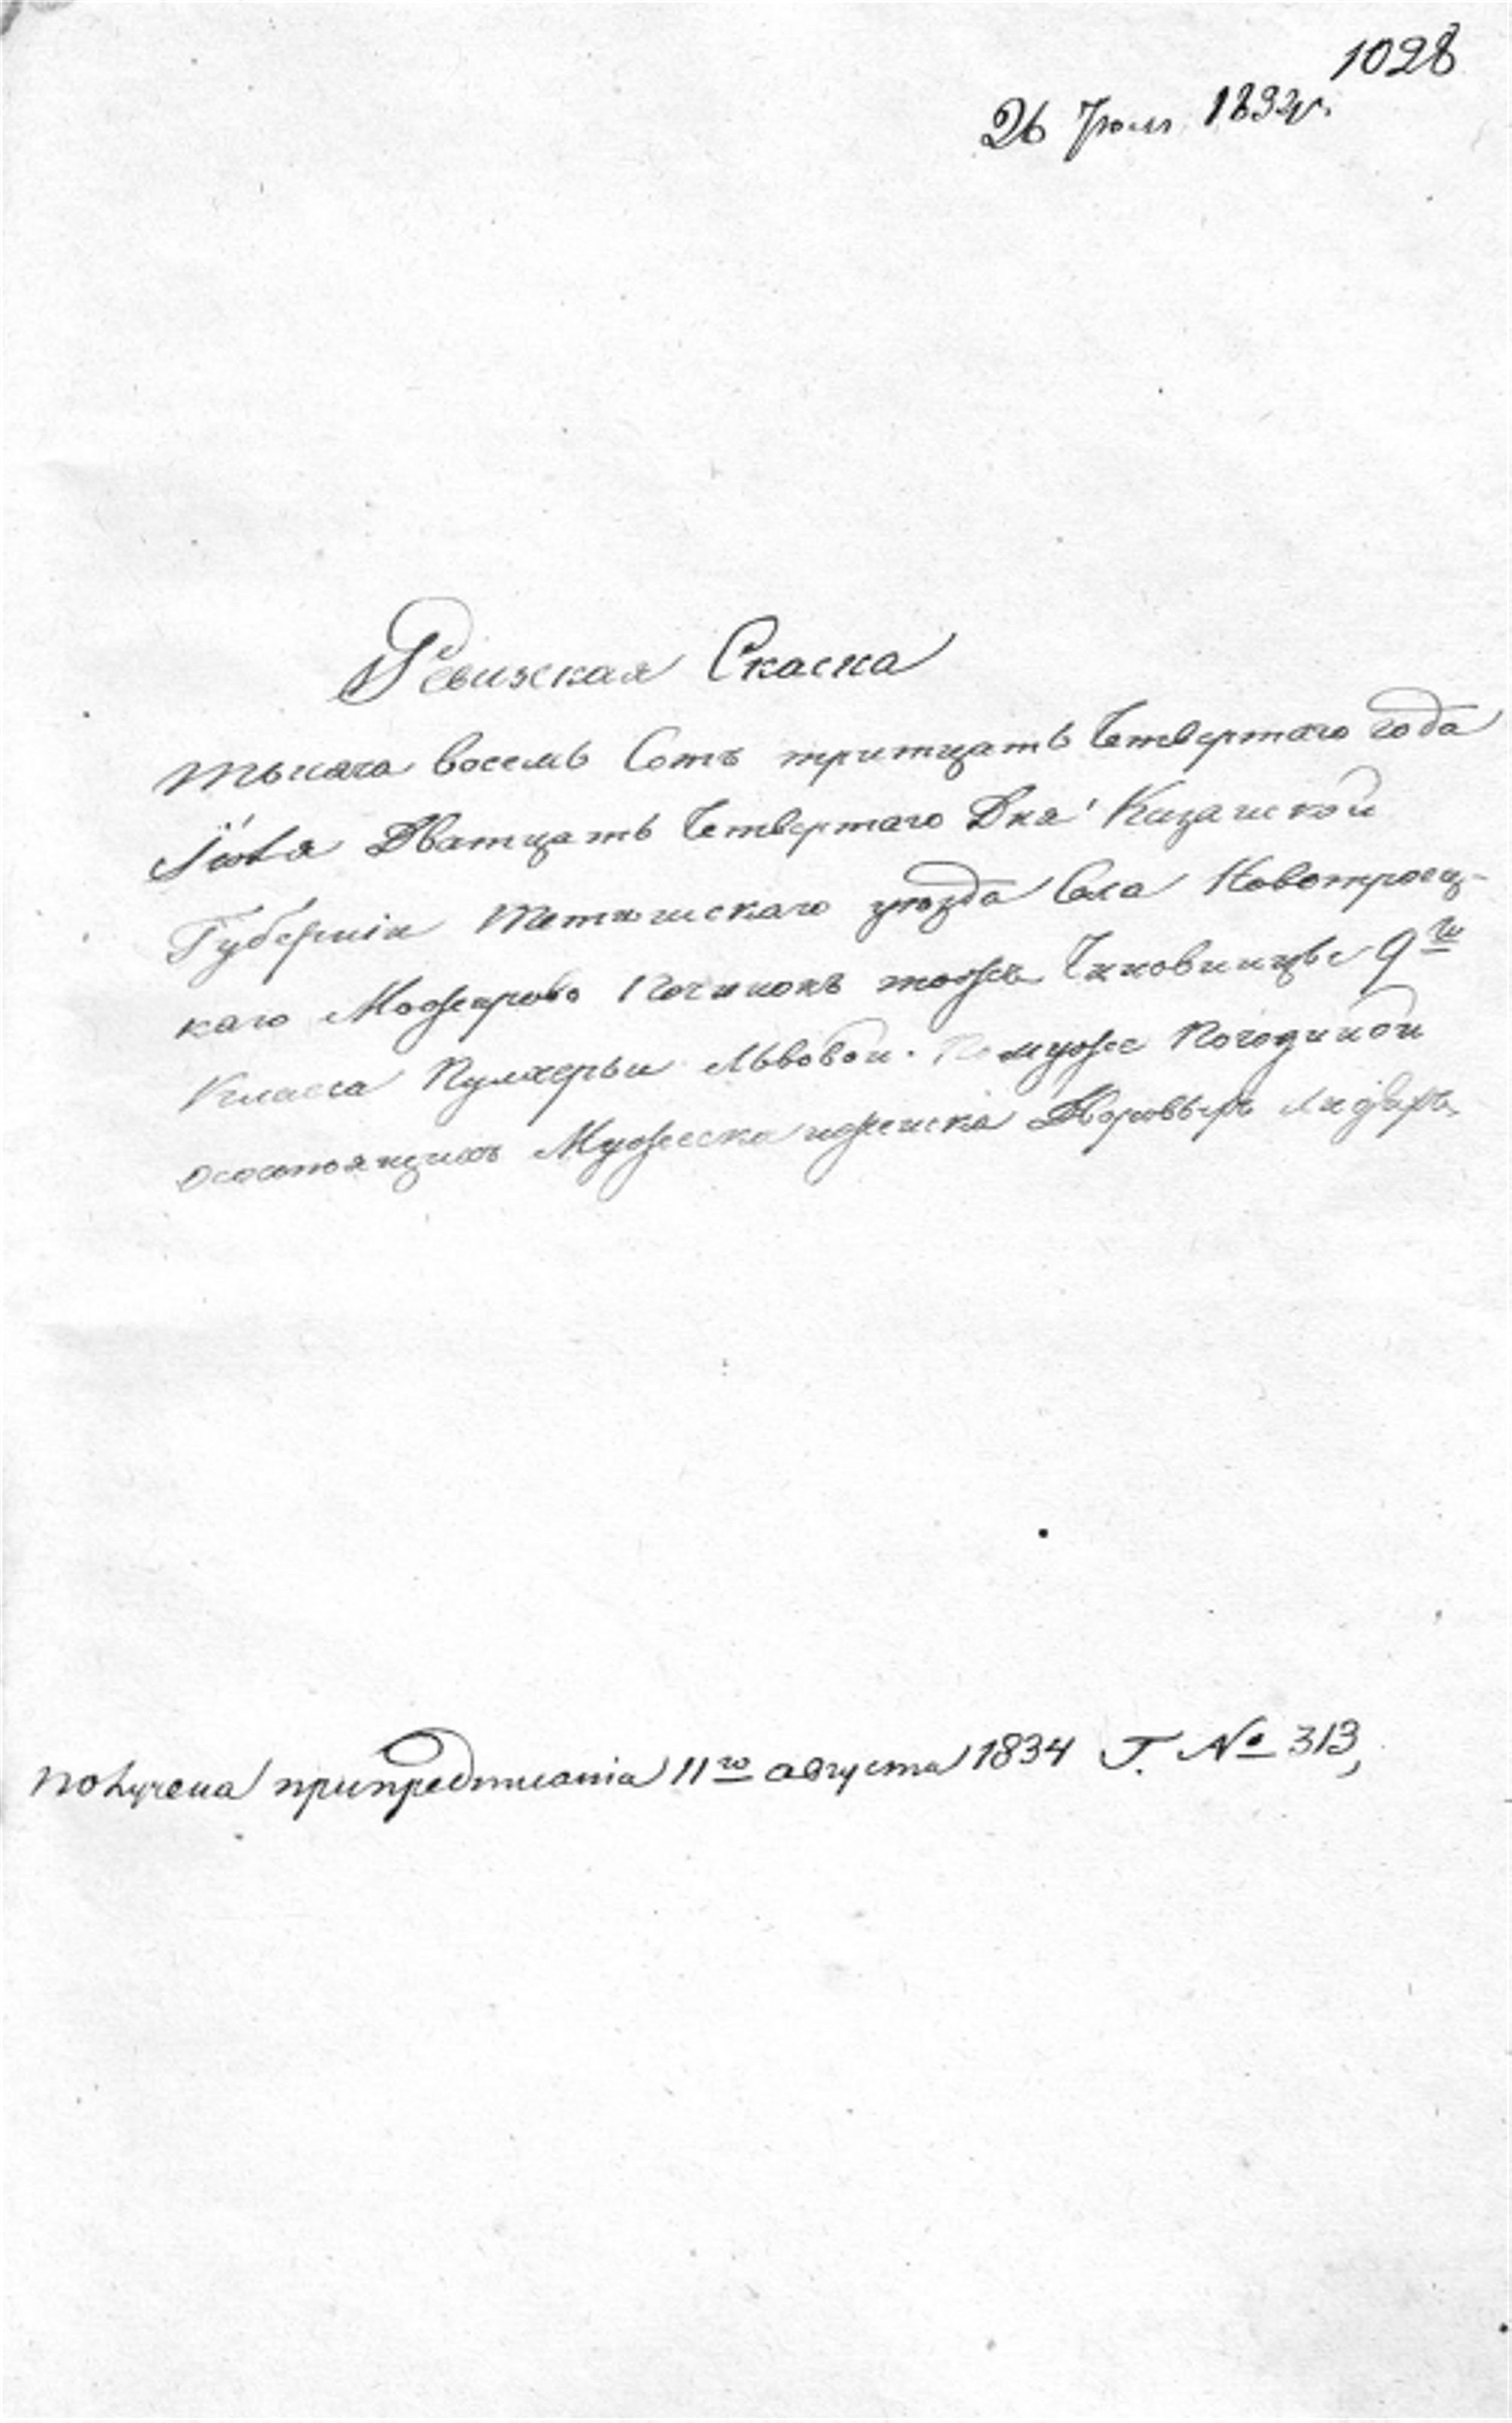 1028
26 Июля 1834г.
Ревизская Скаска
тысяча восемь Сотъ тритцать Четвертаго года
Іюля Дватцать Четвертаго Дня Казанской
Губерніи тетюшскаго уѣзда Села Новотроец-
каго Можарово Починокъ тожъ Чиновницы 9го
Класса Пулхерьи Львовой. По мужѣ Погодиной
осостоящихъ Мужеска иженска Дворовыхъ людѣхъ
получена припредписаніи 11го августа 1834 Г. № 313,